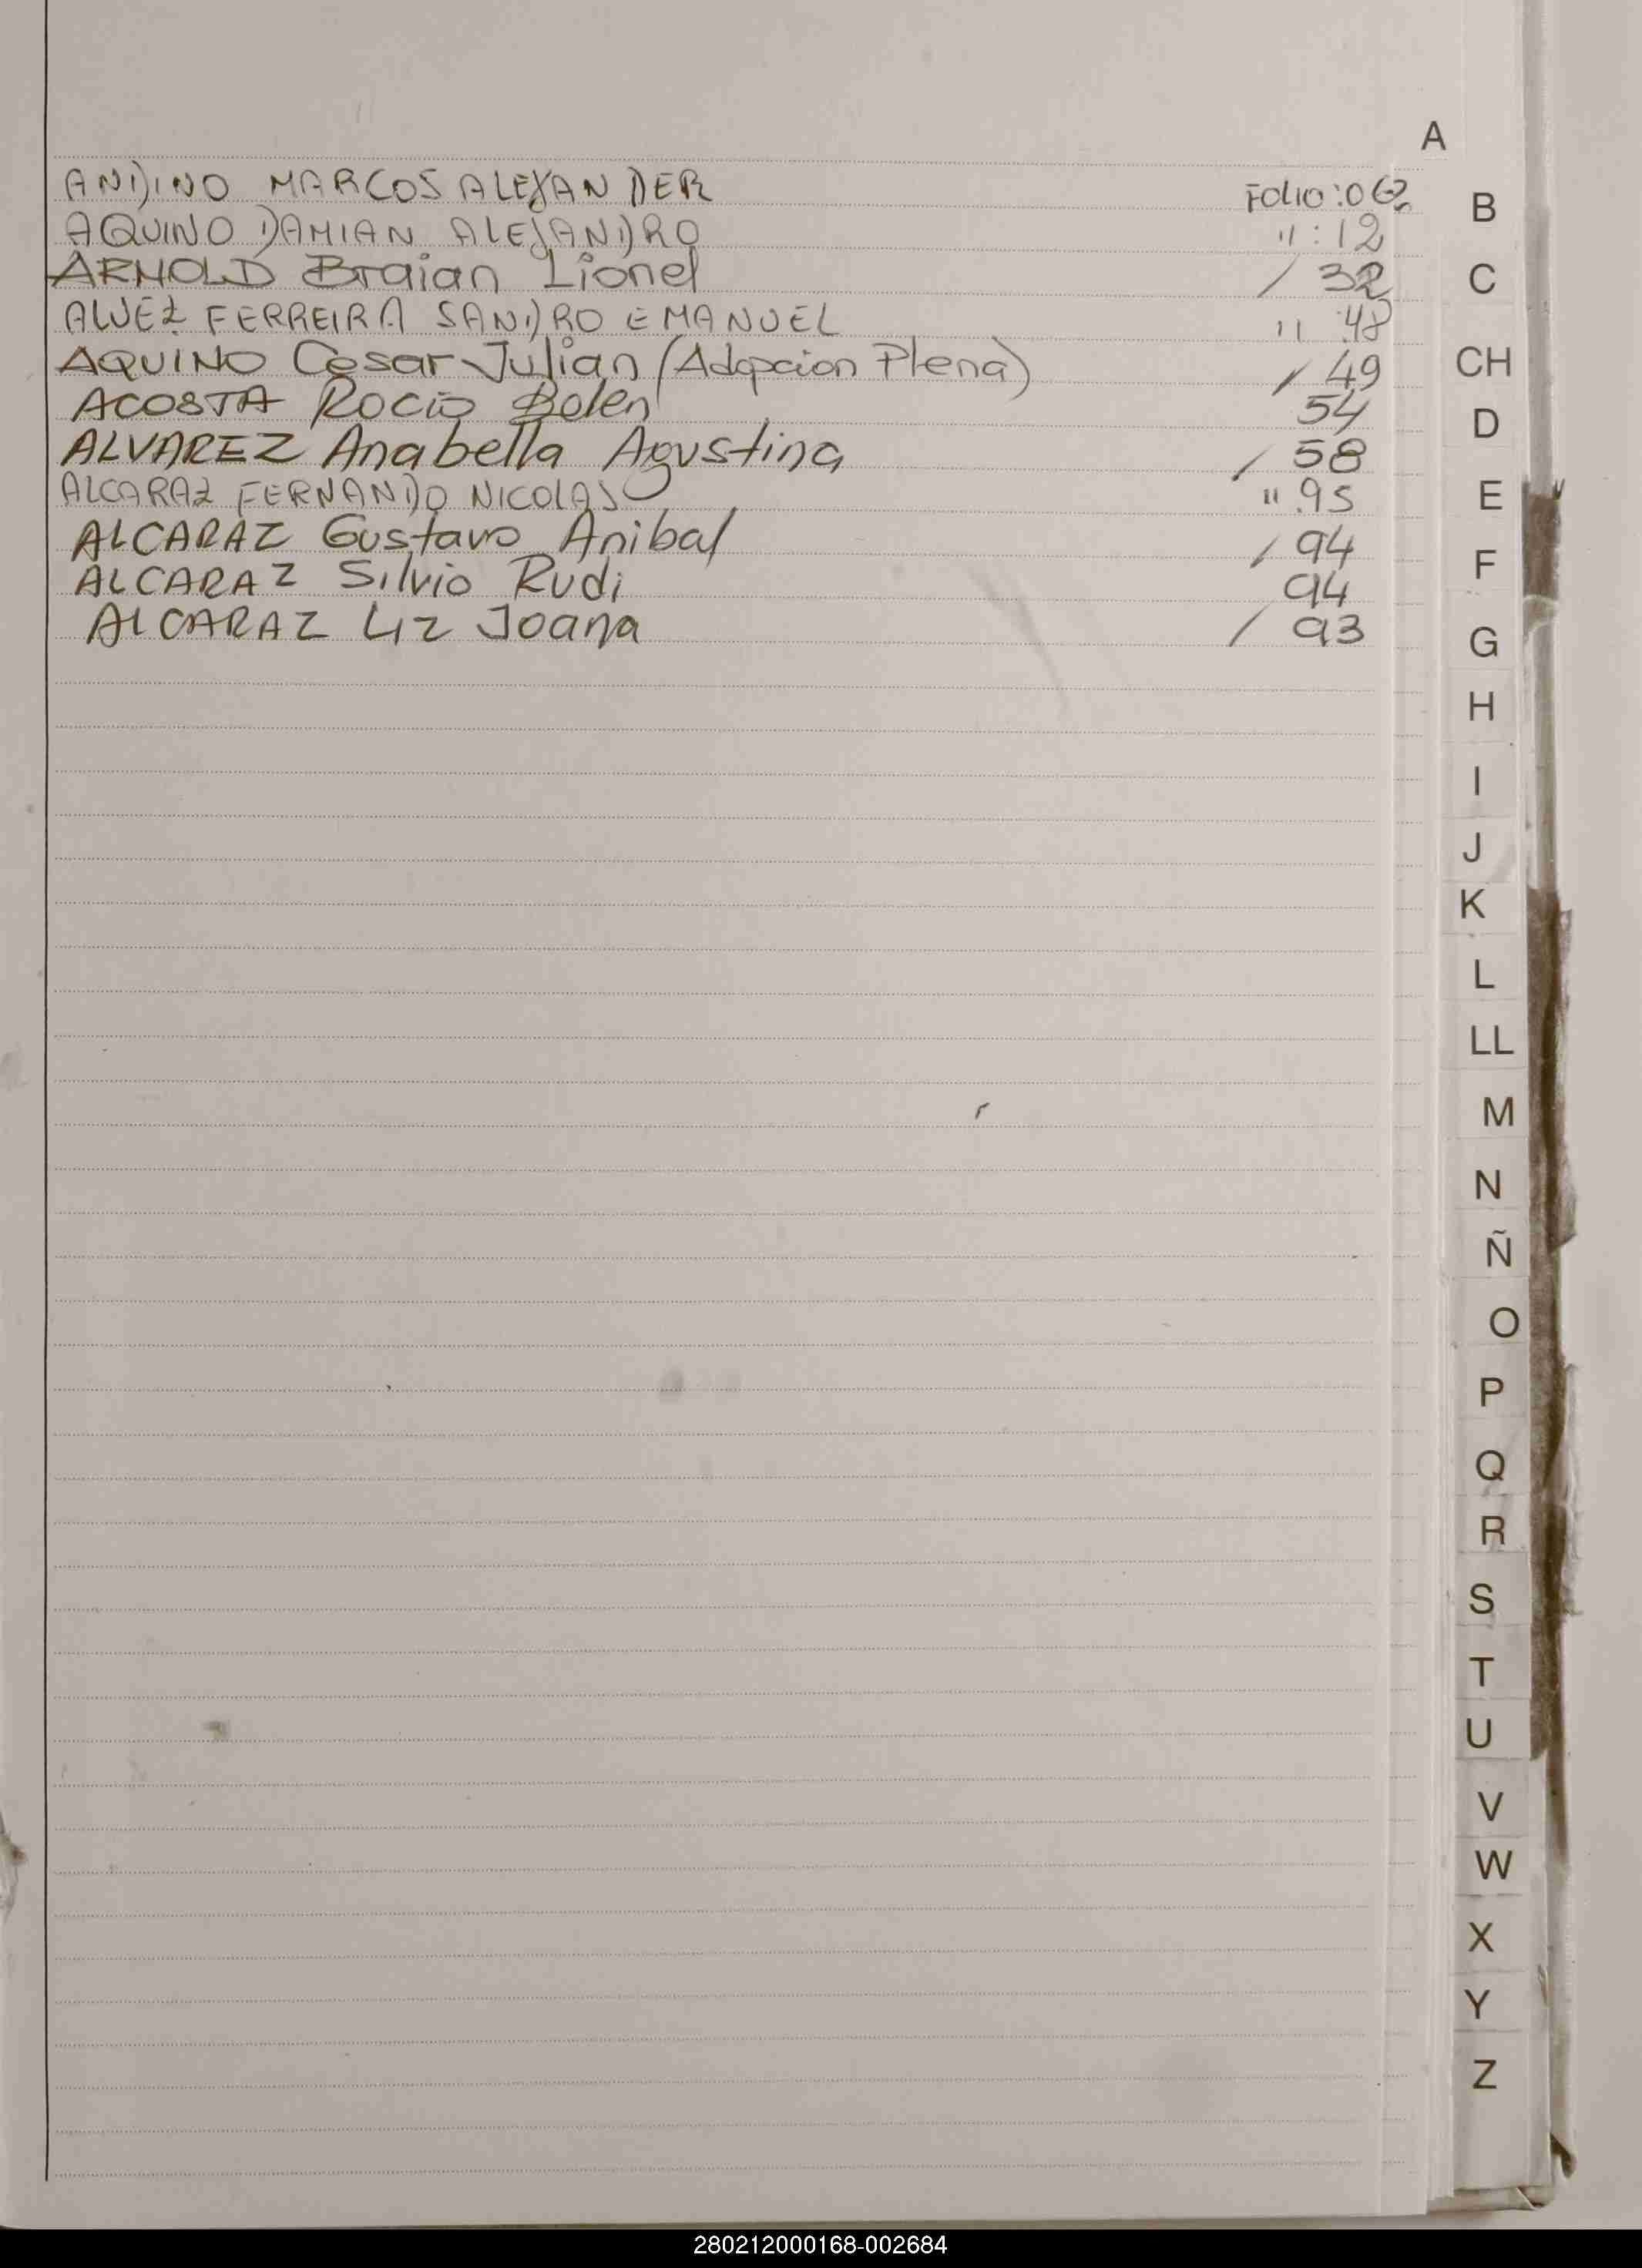 A
ANDINO MARCOS ALEXANDER FOLIO:062
AQUINO DAMIAN ALEJANDRO " : 12
ARNOLD Braian Lionel / 32
ALVEZ FERREIRA SANDRO EMANUEL " :48
AQUINO Cesar Julian (Adopcion Plena) / 49
ACOSTA Rocio Belen 54
ALVAREZ Anabella Agustina / 58
ALCARAZ FERNANDO NICOLAS " :95
ALCARAZ Gustavo Anibal / 94
ALCARAZ Silvio Rudi 94
ALCARAZ Liz Joana / 93
B
C
CH
D
E
F
G
H
I
J
K
L
LL
M
N
Ñ
O
P
Q
R
S
T
U
V
W
X
Y
Z
280212000168-002684